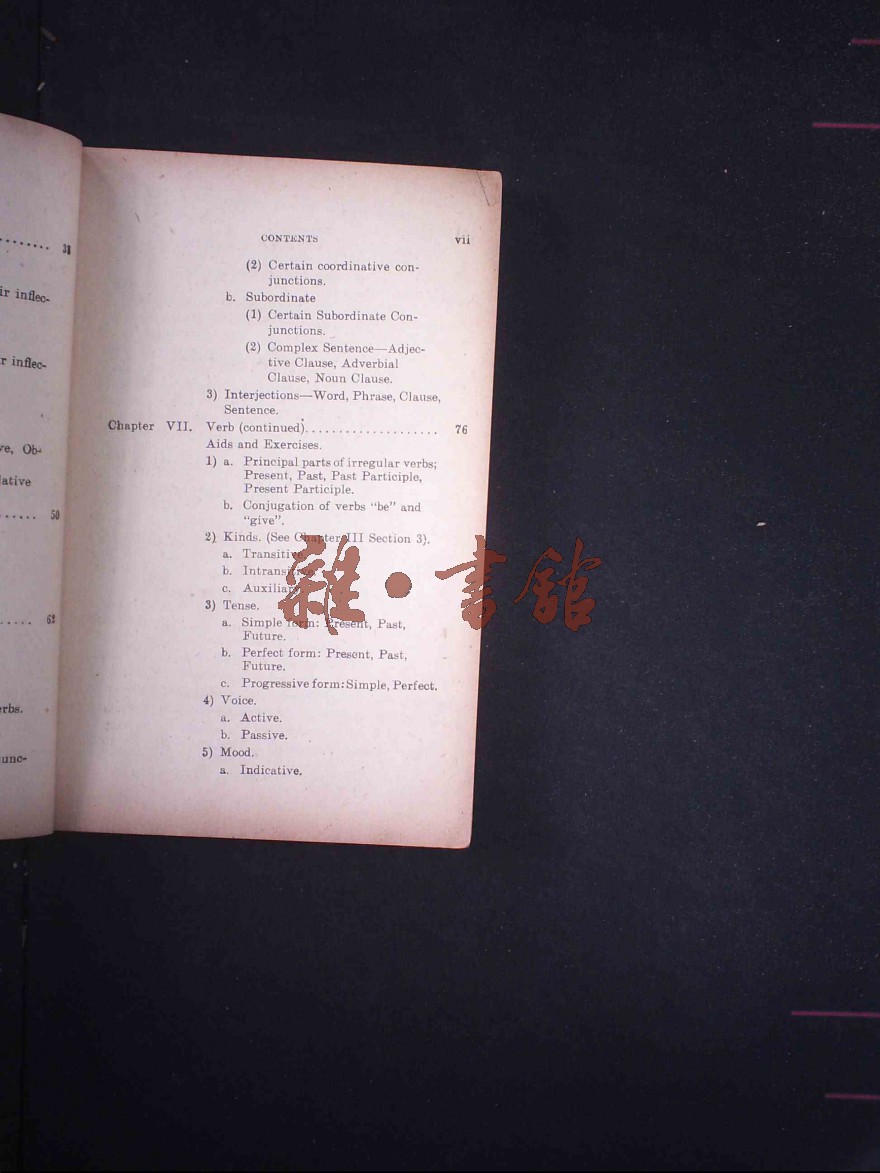 31
ir inflec-
r inflec-
ve, Ob-
lative
50
62
erbs.
unc-
CONTENTS vii
(2) Certain coordinative con-
junctions.
b. Subordinate
(1) Certain Subordinate Con-
junctions.
(2) Complex Sentence—Adjec-
tive Clause, Adverbial
Clause, Noun Clause.
3) Interjections—Word, Phrase, Clause,
Sentence.
Chapter VII. Verb (continued)................... 76
Aids and Exercises.
1) a. Principal parts of irregular verbs;
Present, Past, Past Participle,
Present Participle.
b. Conjugation of verbs “be” and
“give”.
2) Kinds. (See Chapter III Section 3).
a. Transitive.
b. Intransitive.
c. Auxiliary.
3) Tense.
a. Simple form: Present, Past,
Future.
b. Perfect form: Present, Past,
Future.
c. Progressive form: Simple, Perfect.
4) Voice.
a. Active.
b. Passive.
5) Mood.
a. Indicative.
雜·書館